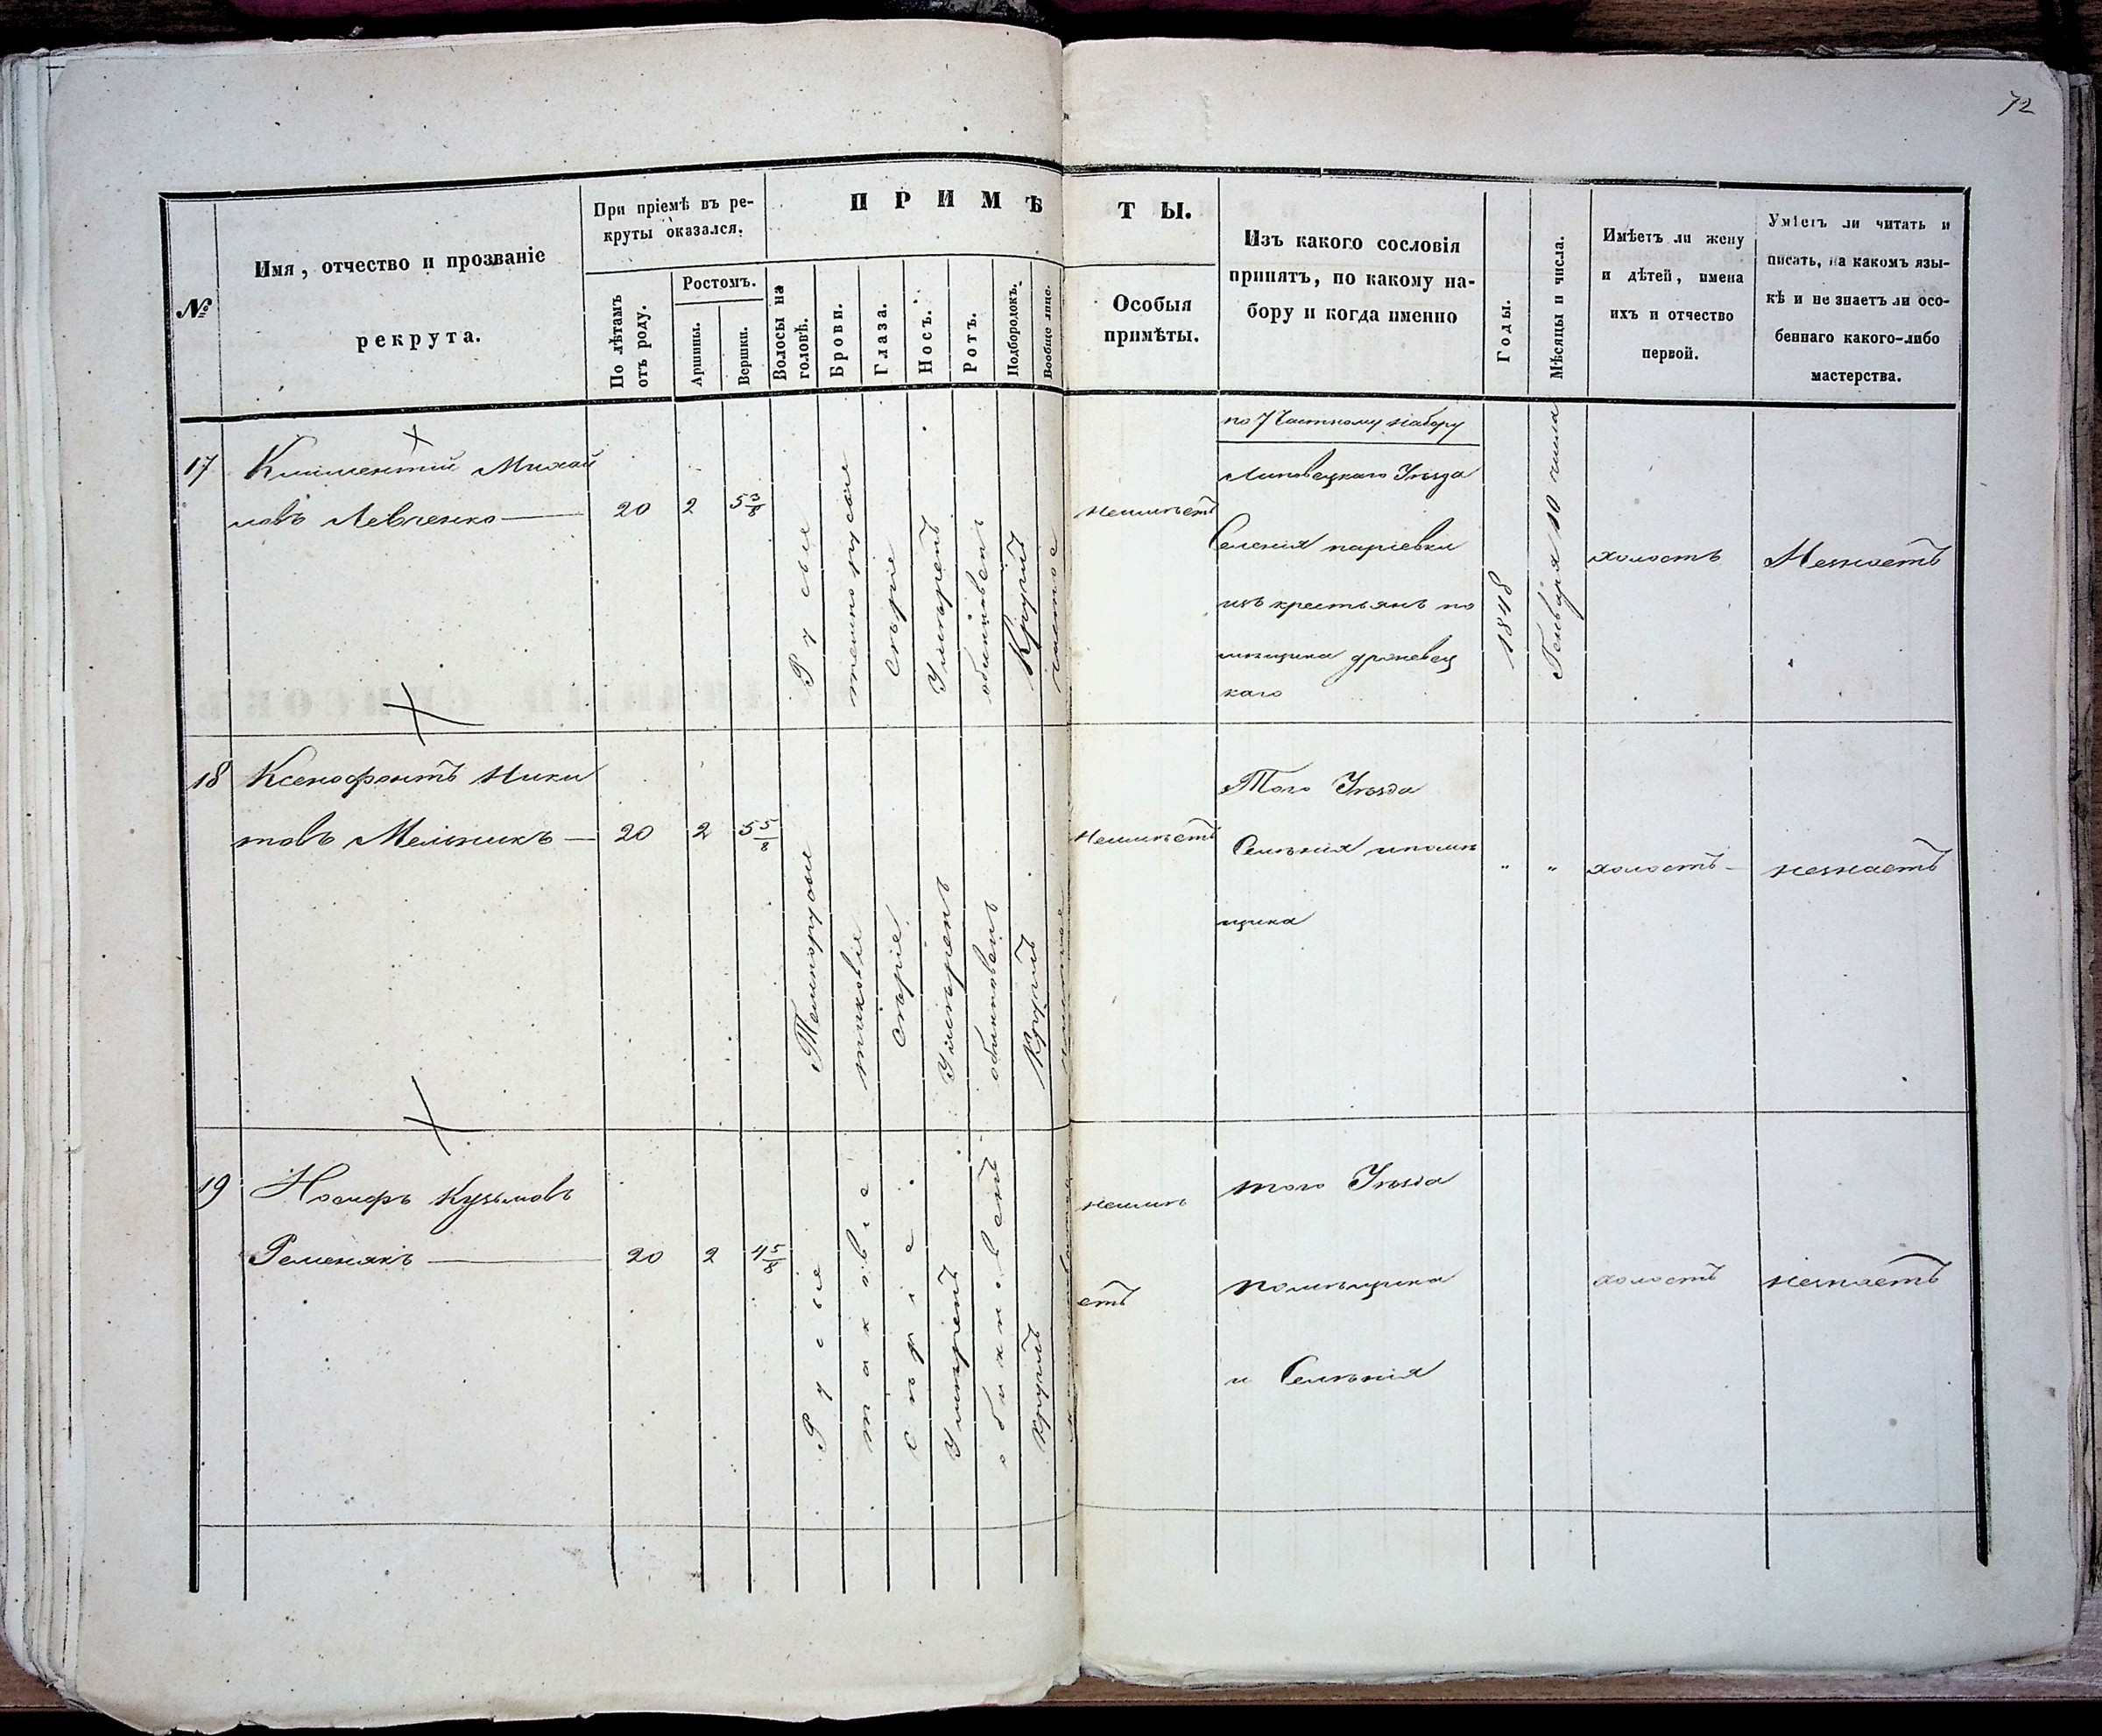 72
№
Имя, отчество и прозваніе
рекрута.
При пріемѣ въ ре-
круты оказался.
По лѣтамъ
отъ роду.
Ростомъ.
Аршины.
Вершки.
ПРИМѢТЫ.
Волосы на
головѣ.
Брови.
Глаза.
Носъ.
Ротъ.
Подбородокъ.
Вообще лице.
Особыя
примѣты.
Изъ какого сословія
принятъ, по какому на-
бору и когда именно
Годы.
Мѣсяцы и числа.
Имѣетъ ли жену
и дѣтей, имена
ихъ и отчество
первой.
Умѣетъ ли читать и
писать, на какомъ язы-
кѣ и не знаетъ ли осо-
беннаго какого-либо
мастерства.
17
Климентій Михай
ловъ Левченко
20
2
5 3/8
Русые
темнорусые
сѣріе
Умѣренъ
обыкновенъ
Круглъ
чистое
неимѣетъ
по 7 Частному набору
Липовецкаго Уѣзда
Селенія паріевки
изъ крестьянъ по
мѣщика
каго
1848
Генваря 10 числа
холостъ
Незнаетъ
18
Ксенофонтъ Ники
товъ Мельникъ
20
2
5 5/8
Темнорусые
таковые
сѣріе
Умѣренъ
обыкновенъ
Круглъ
чистое
Неимѣетъ
Того Уѣзда
Селѣнія ипомѣ
щика
"
"
холостъ
незнаетъ
19
Іосифъ Кузьмовъ
Ременякъ
20
2
4 5/8
Русые
таковіе
Сѣріе
Умѣренъ
обыкновенъ
круглъ
неимѣ
етъ
того Уѣзда
помѣщика
и Селѣнія
холостъ
незнаетъ